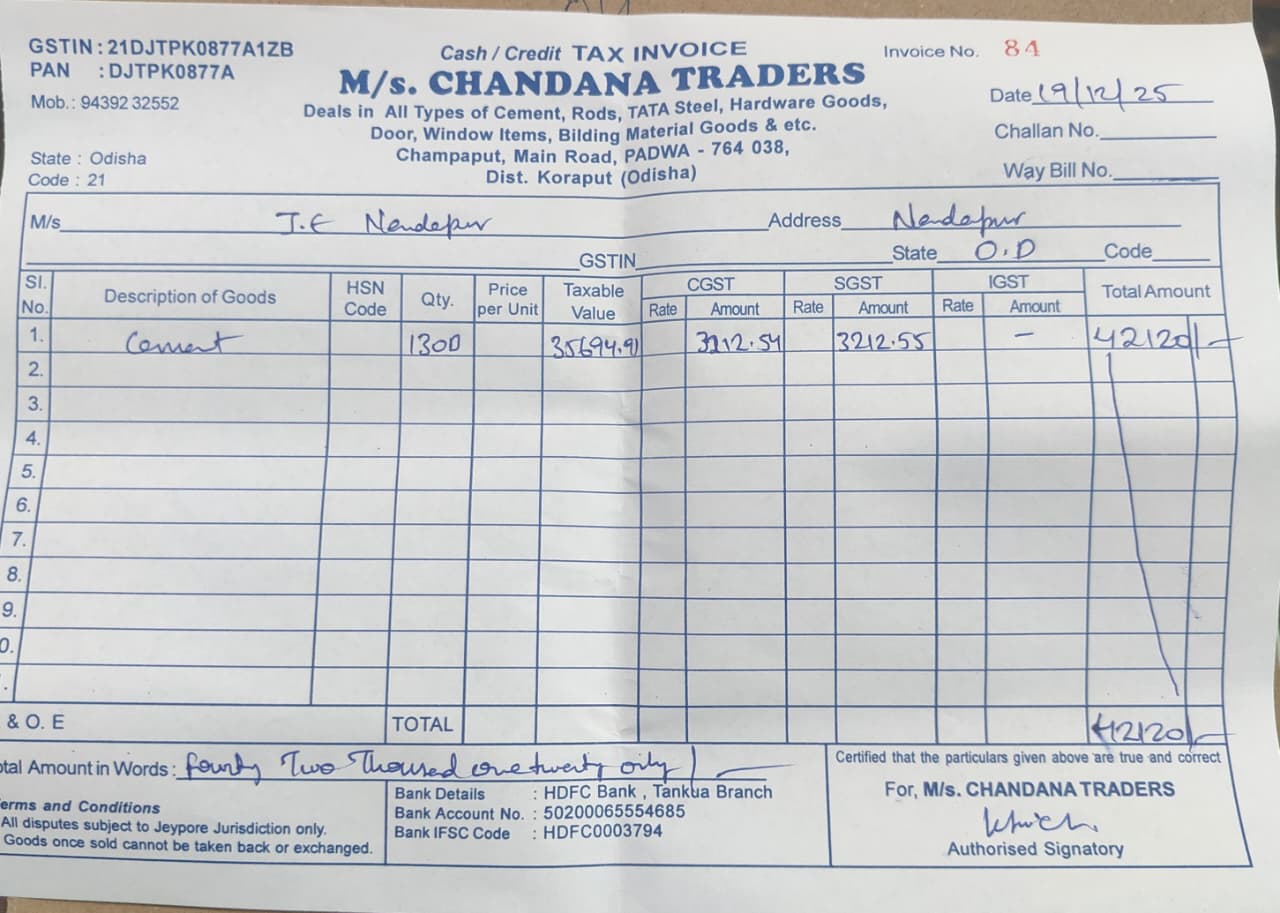 GSTIN : 21DJTPK0877A1ZB
PAN : DJTPK0877A
Mob.: 94392 32552
State : Odisha
Code : 21
Cash / Credit TAX INVOICE
M/s. CHANDANA TRADERS
Deals in All Types of Cement, Rods, TATA Steel, Hardware Goods,
Door, Window Items, Bilding Material Goods & etc.
Champaput, Main Road, PADWA - 764 038,
Dist. Koraput (Odisha)
Invoice No. 84
Date 19/12/25
Challan No.
Way Bill No.
M/s J.E Nandapur Address Nandapur
GSTIN State O.D Code
Sl. No. Description of Goods HSN Code Qty. Price per Unit Taxable Value CGST SGST IGST Total Amount
Rate Amount Rate Amount Rate Amount
1. Cement 130D 35694.91 3212.54 3212.55 – 42120/-
2.
3.
4.
5.
6.
7.
8.
9.
0.
.
& O. E TOTAL 42120/-
otal Amount in Words : fourty Two Thoused one twenty only /-
erms and Conditions
All disputes subject to Jeypore Jurisdiction only.
Goods once sold cannot be taken back or exchanged.
Bank Details : HDFC Bank , Tankua Branch
Bank Account No. : 50200065554685
Bank IFSC Code : HDFC0003794
Certified that the particulars given above are true and correct
For, M/s. CHANDANA TRADERS
Authorised Signatory